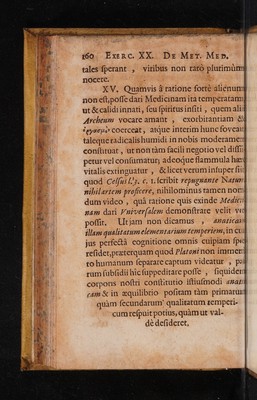 160 EXERC. XX. DE MET. MED.
tales sperant, viribus non raro plurimùm
nocere.
XV. Quamvis à ratione forte alienum
non est, posse dari Medicinam ita temperatam
ut & calidi innati, seu spiritus insiti, quem alii
Archeum vocare amant, exorbitantiam &
coerceat, atque interim hunc foveat
taleque radicalis humidi in nobis moderamen
constituat, ut non tam facili negotio vel dissi-
petur vel consumatur, adeoque flammula hæc
vitalis extinguatur, & licet verum insuper sit
quod Celsus l. 3. c. 1. scribit repugnante Natura
nihil artem proficere, nihilominus tamen non
dum video, quâ ratione quis exinde Medici-
nam dari Universalem demonstrare velit vel
possit. Ut jam non dicamus,
illam qualitatum elementarium temperiem, in cu-
jus perfectâ cognitione omnis cuipiam spes
residet, præterquam quod Platoni non immeri-
to humanum separe captum videatur,
rum subsidii hic suppeditare posse, siquidem
corporis nostri constitutio istiusmodi
& in æquilibrio positam tàm primarum
quàm secundarum qualitatum temperi-
cum respuit potius, quàm ut val-
dè desideret,